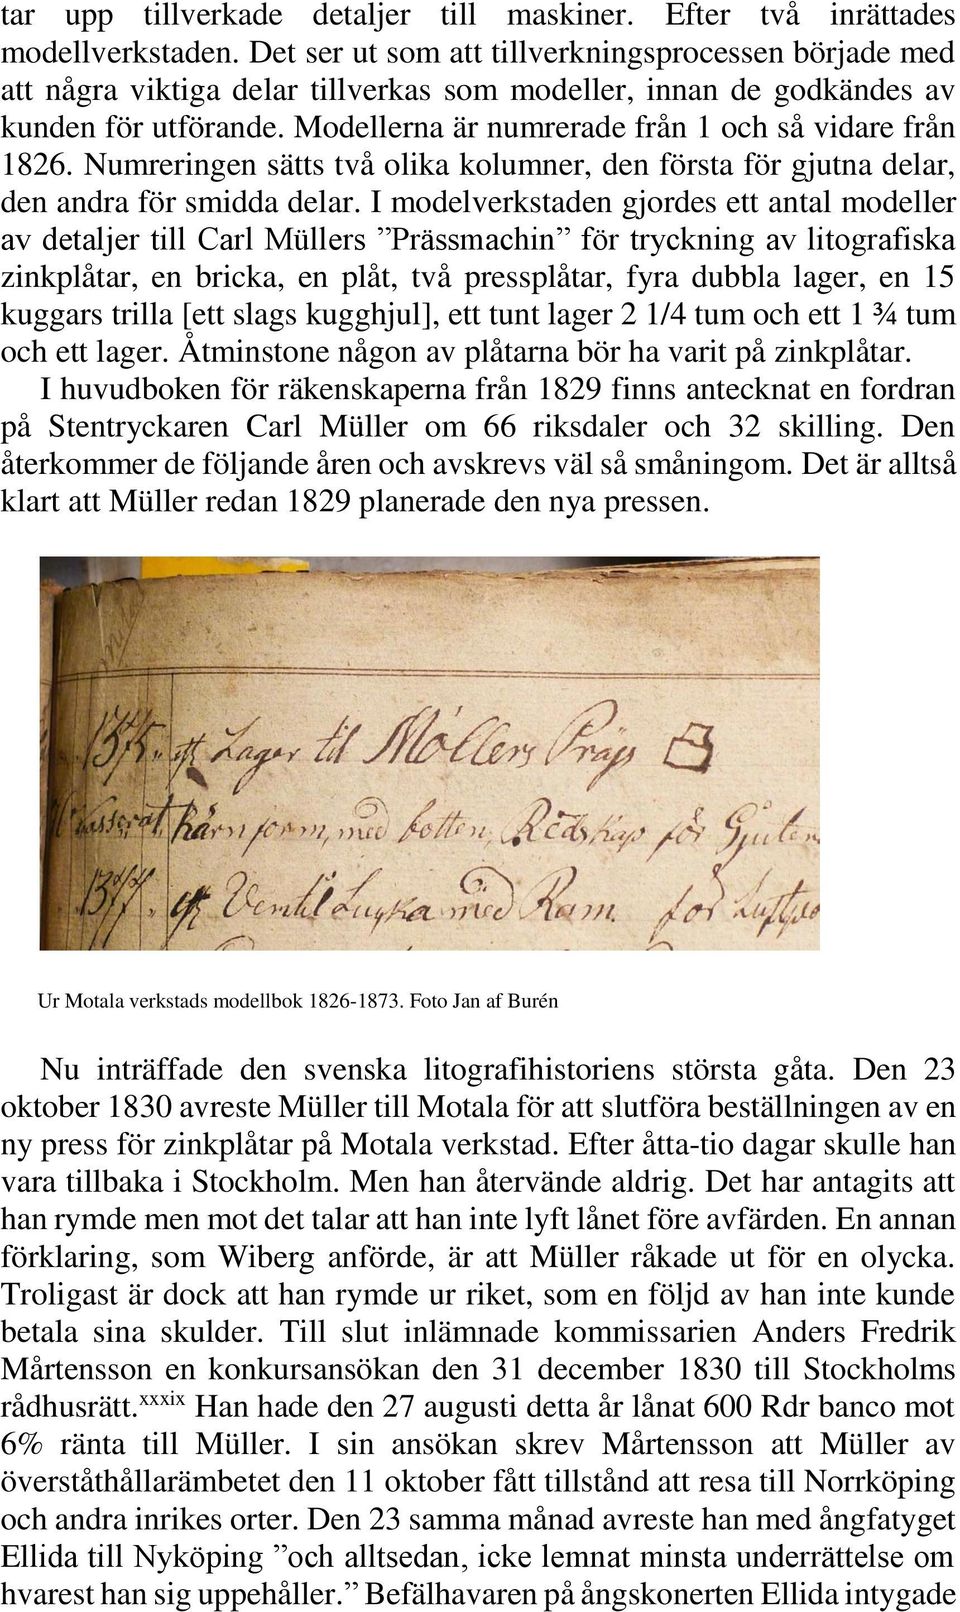 tar upp tillverkade detaljer till maskiner. Efter två inrättades
modellverkstaden. Det ser ut som att tillverkningsprocessen började med
att några viktiga delar tillverkas som modeller, innan de godkändes av
kunden för utförande. Modellerna är numrerade från 1 och så vidare från
1826. Numreringen sätts två olika kolumner, den första för gjutna delar,
den andra för smidda delar. I modelverkstaden gjordes ett antal modeller
av detaljer till Carl Müllers ”Prässmachin” för tryckning av litografiska
zinkplåtar, en bricka, en plåt, två pressplåtar, fyra dubbla lager, en 15
kuggars trilla [ett slags kugghjul], ett tunt lager 2 1/4 tum och ett 1 ¾ tum
och ett lager. Åtminstone någon av plåtarna bör ha varit på zinkplåtar.
I huvudboken för räkenskaperna från 1829 finns antecknat en fordran
på Stentryckaren Carl Müller om 66 riksdaler och 32 skilling. Den
återkommer de följande åren och avskrevs väl så småningom. Det är alltså
klart att Müller redan 1829 planerade den nya pressen.
Lager til Möllers Präss
Kärnform, med botten, Redskap för Gjuter
1377 Ventil Lucka med Ram för
Ur Motala verkstads modellbok 1826-1873. Foto Jan af Burén
Nu inträffade den svenska litografihistoriens största gåta. Den 23
oktober 1830 avreste Müller till Motala för att slutföra beställningen av en
ny press för zinkplåtar på Motala verkstad. Efter åtta-tio dagar skulle han
vara tillbaka i Stockholm. Men han återvände aldrig. Det har antagits att
han rymde men mot det talar att han inte lyft lånet före avfärden. En annan
förklaring, som Wiberg anförde, är att Müller råkade ut för en olycka.
Troligast är dock att han rymde ur riket, som en följd av han inte kunde
betala sina skulder. Till slut inlämnade kommissarien Anders Fredrik
Mårtensson en konkursansökan den 31 december 1830 till Stockholms
rådhusrätt.xxxix Han hade den 27 augusti detta år lånat 600 Rdr banco mot
6% ränta till Müller. I sin ansökan skrev Mårtensson att Müller av
överståthållarämbetet den 11 oktober fått tillstånd att resa till Norrköping
och andra inrikes orter. Den 23 samma månad avreste han med ångfatyget
Ellida till Nyköping ”och alltsedan, icke lemnat minsta underrättelse om
hvarest han sig uppehåller.” Befälhavaren på ångskonerten Ellida intygade